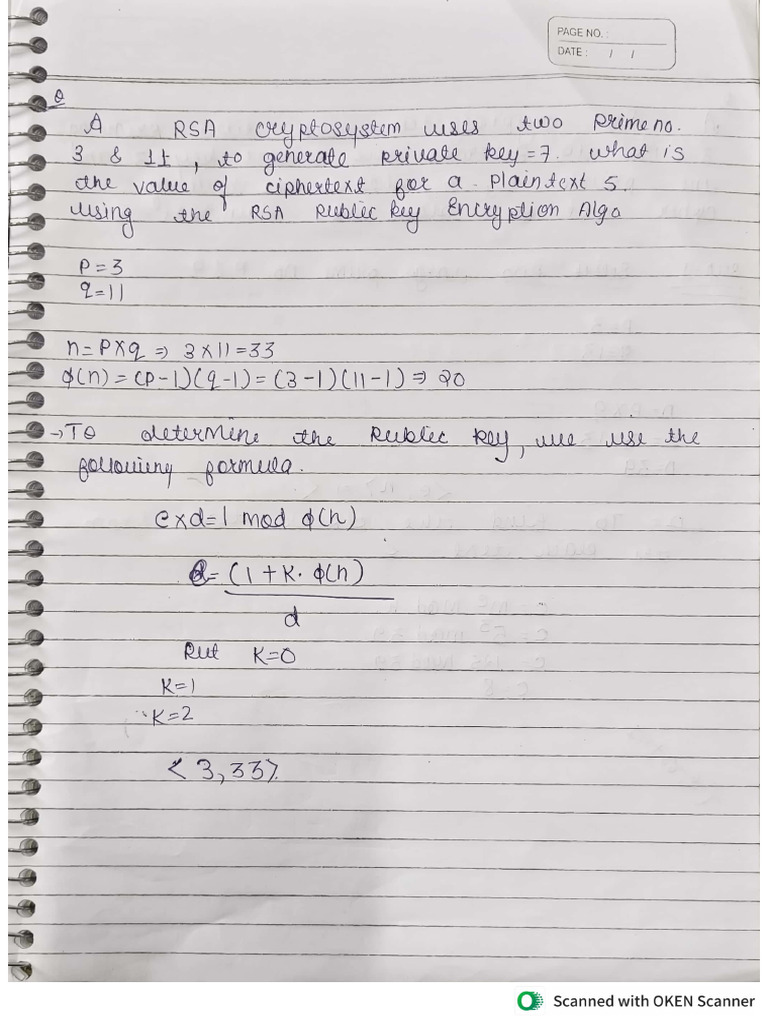 PAGE NO. :
DATE : / /
Q
A RSA cryptosystem uses two prime no.
3 & 11, to generate private key=7. what is
the value of ciphertext for a plaintext 5.
using the RSA public key Encryption Algo
P=3
q=11
n=P×q ⇒ 3×11=33
ϕ(n)=(P-1)(q-1)=(3-1)(11-1)⇒20
→To determine the public key, we use the
following formula.
e×d=1 mod ϕ(n)
e=(1+K. ϕ(n)
d
Put K=0
K=1
K=2
<3,33>
Scanned with OKEN Scanner